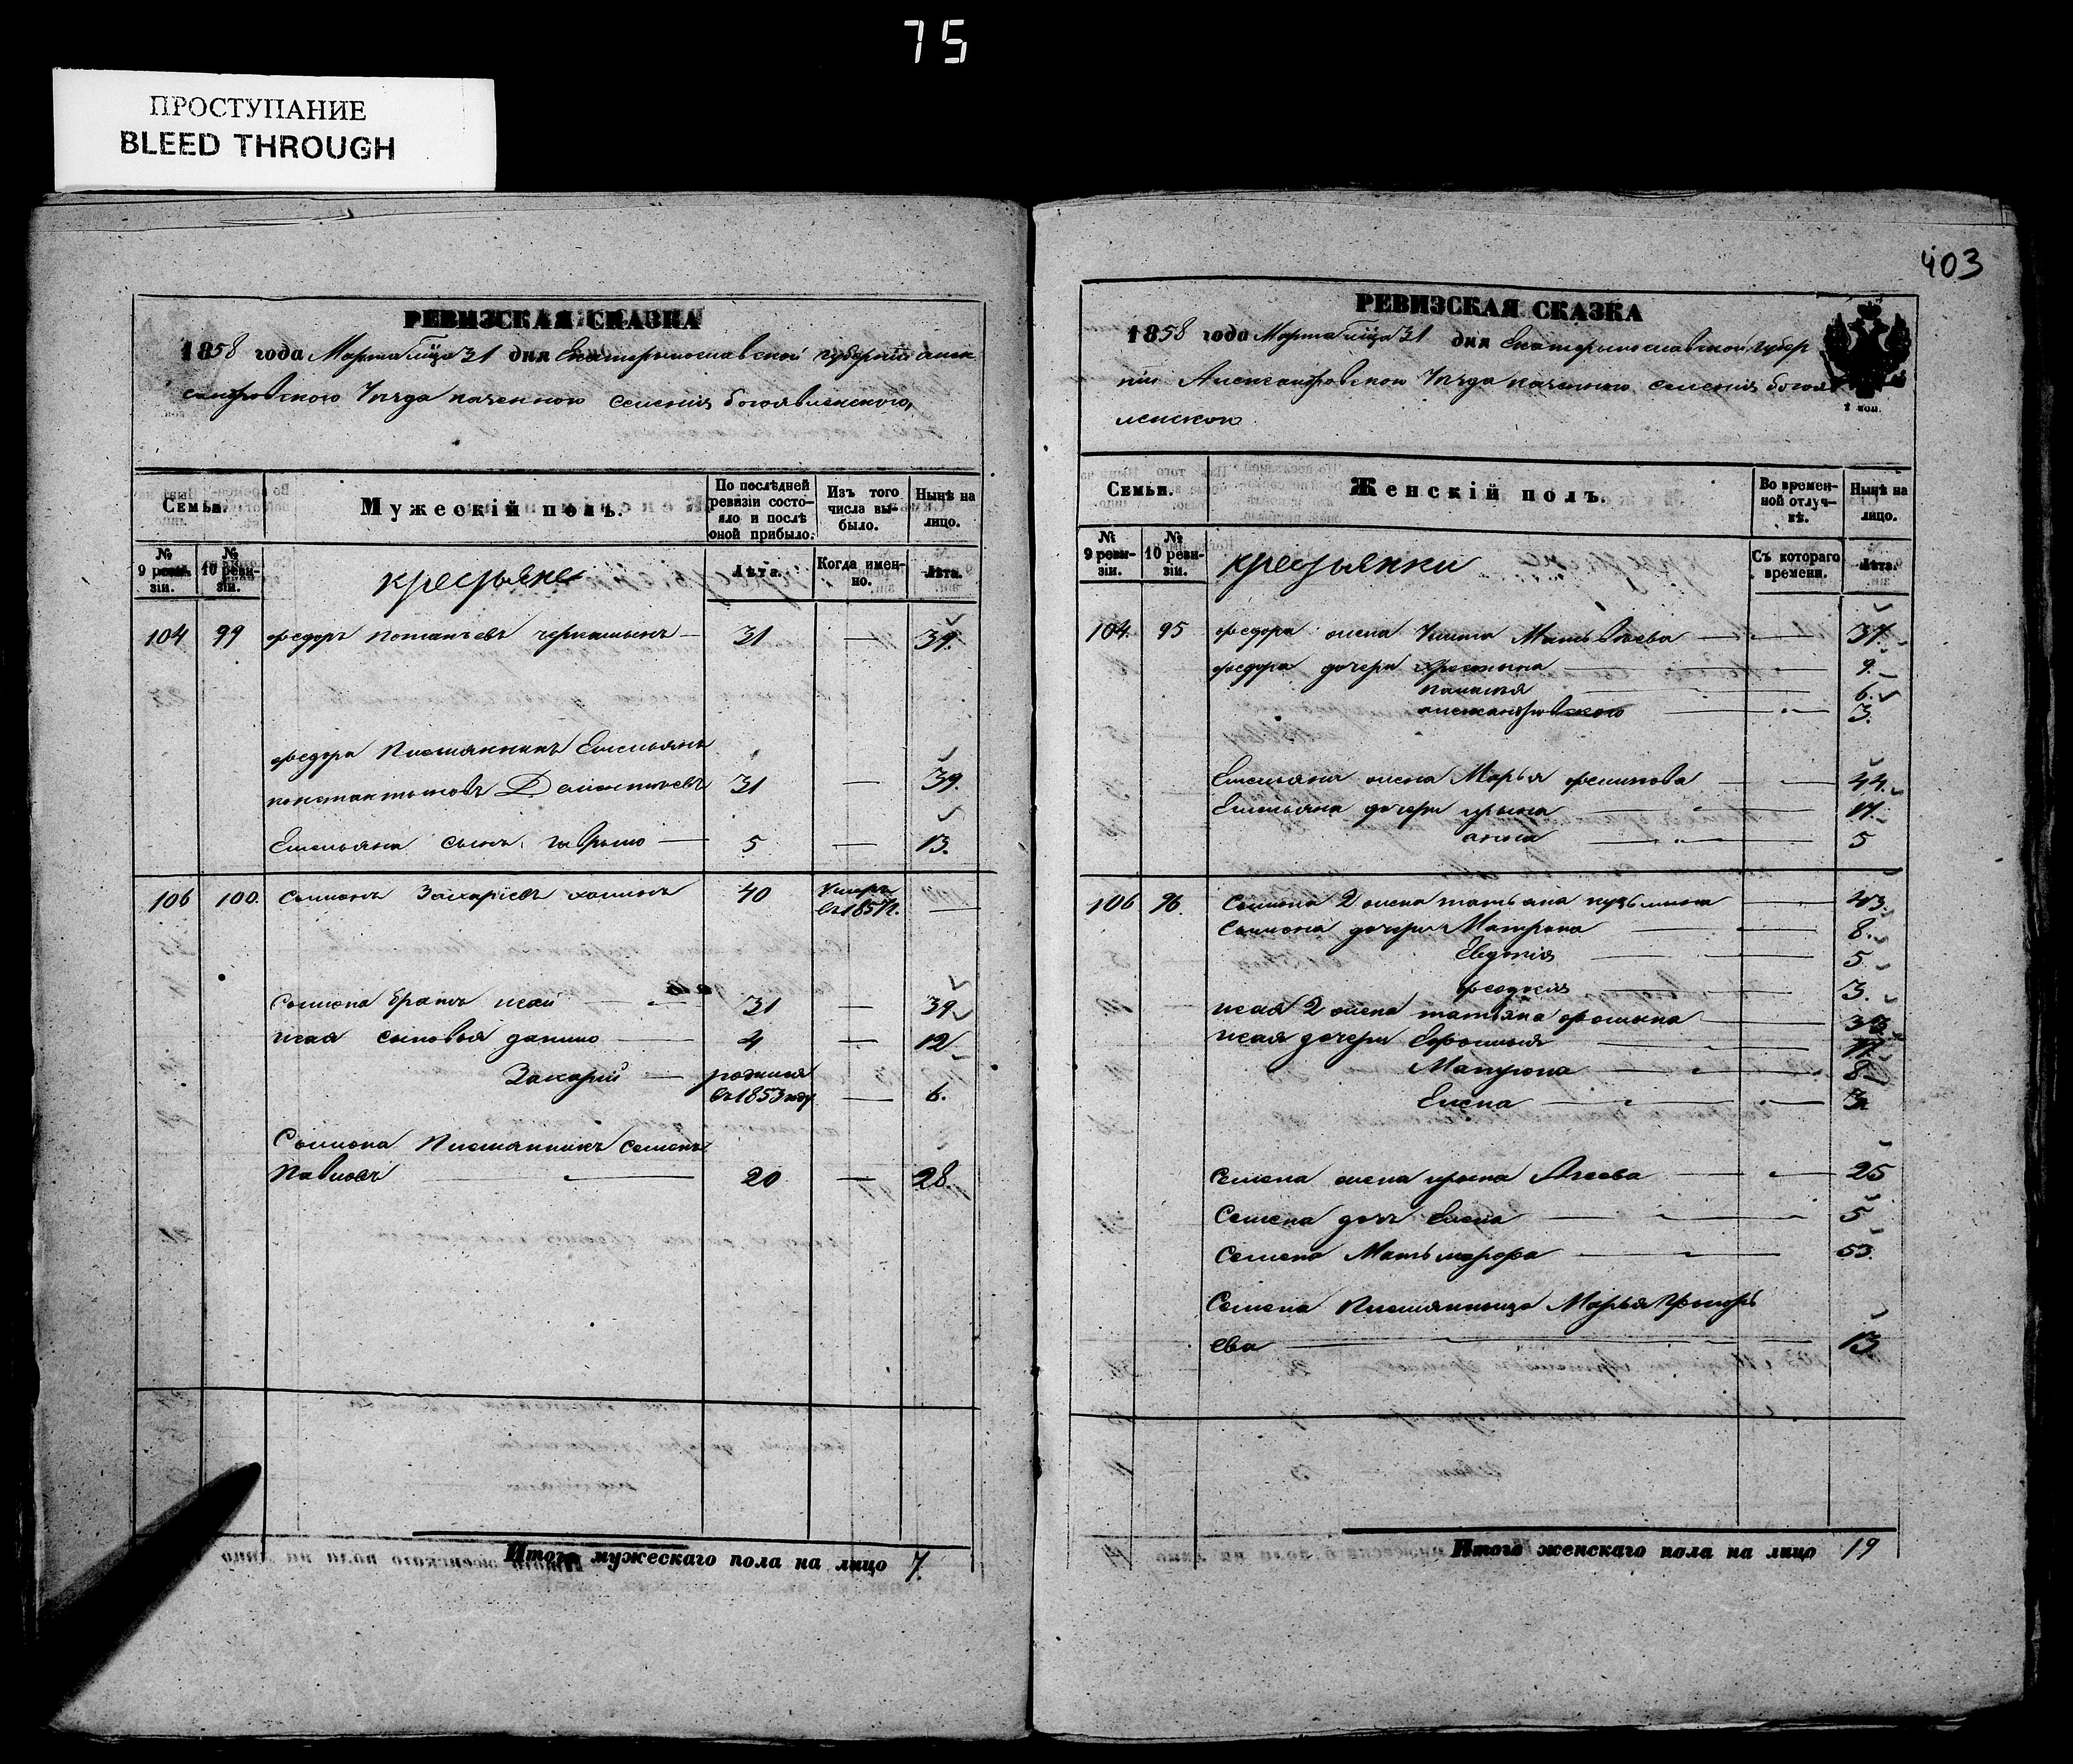 75
ПРОСТУПАНИЕ
BLEED THROUGH
РЕВИЗСКАЯ СКАЗКА
1858 года Марта м҃ца 31 дня Екатеринославской губерніи Алек
сандровского Уезда казенного селенія богоявленского,
Семьи.
Мужескій полъ.
По послѣдней ревизіи состояло и послѣ оной прибыло.
Изъ того числа выбыло.
Нынѣ на лицо.
№ 9 ревизіи.
№ 10 ревизіи.
крестьяне
Лѣта.
Когда именно.
Лѣта.
104 99 федоръ потапьевъ — 31 — 39.
федора племянникъ Емельянъ
константиновъ Дементьевъ 31 — 39.
Емельяна сынъ гаврило — 5 — 13.
106 100. Соллонъ Захаріевъ 40 умеръ въ 1857 г. —
Соллона братъ исай — 31 — 39
исая сыновья данило — 4 — 12
Захарій — родился въ 1853 году — 6.
Соллона племянникъ семенъ
Павловъ — 20 — 28.
Итого мужескаго пола на лицо 7.
403
РЕВИЗСКАЯ СКАЗКА
1858 года Марта м҃ца 31 дня Екатеринославской губер
ніи Александровского Уезда казенного селенія богояв
ленского
Семьи.
Женскій полъ.
Во временной отлучкѣ.
Нынѣ на лицо.
№ 9 ревизіи.
№ 10 ревизіи.
крестьянки
Съ котораго времени.
Лѣта.
104. 95 федора жена Улита Матвѣева — 37.
федора дочери христина — 9.
палагія — 6.
3.
Емельяна жена Марья филипова — 44.
Емельяна дочери ирина — 17.
анна — 5
106 96. Соллона 2 жена татьяна кузьмина — 43.
Соллона дочери Матрона — 8.
Евдокія — 5
феодосія — 3.
исая 2 жена татьяна фомина —
исая дочери Ефросинія —
Матрона — 8
Елена — 3
Семена жена ирина Агеева — 25
Семена дочь Елена — 5
Семена Мать марфа — 53.
Семена племянница Марья Григорь
ева — 13
Итого женскаго пола на лицо 19